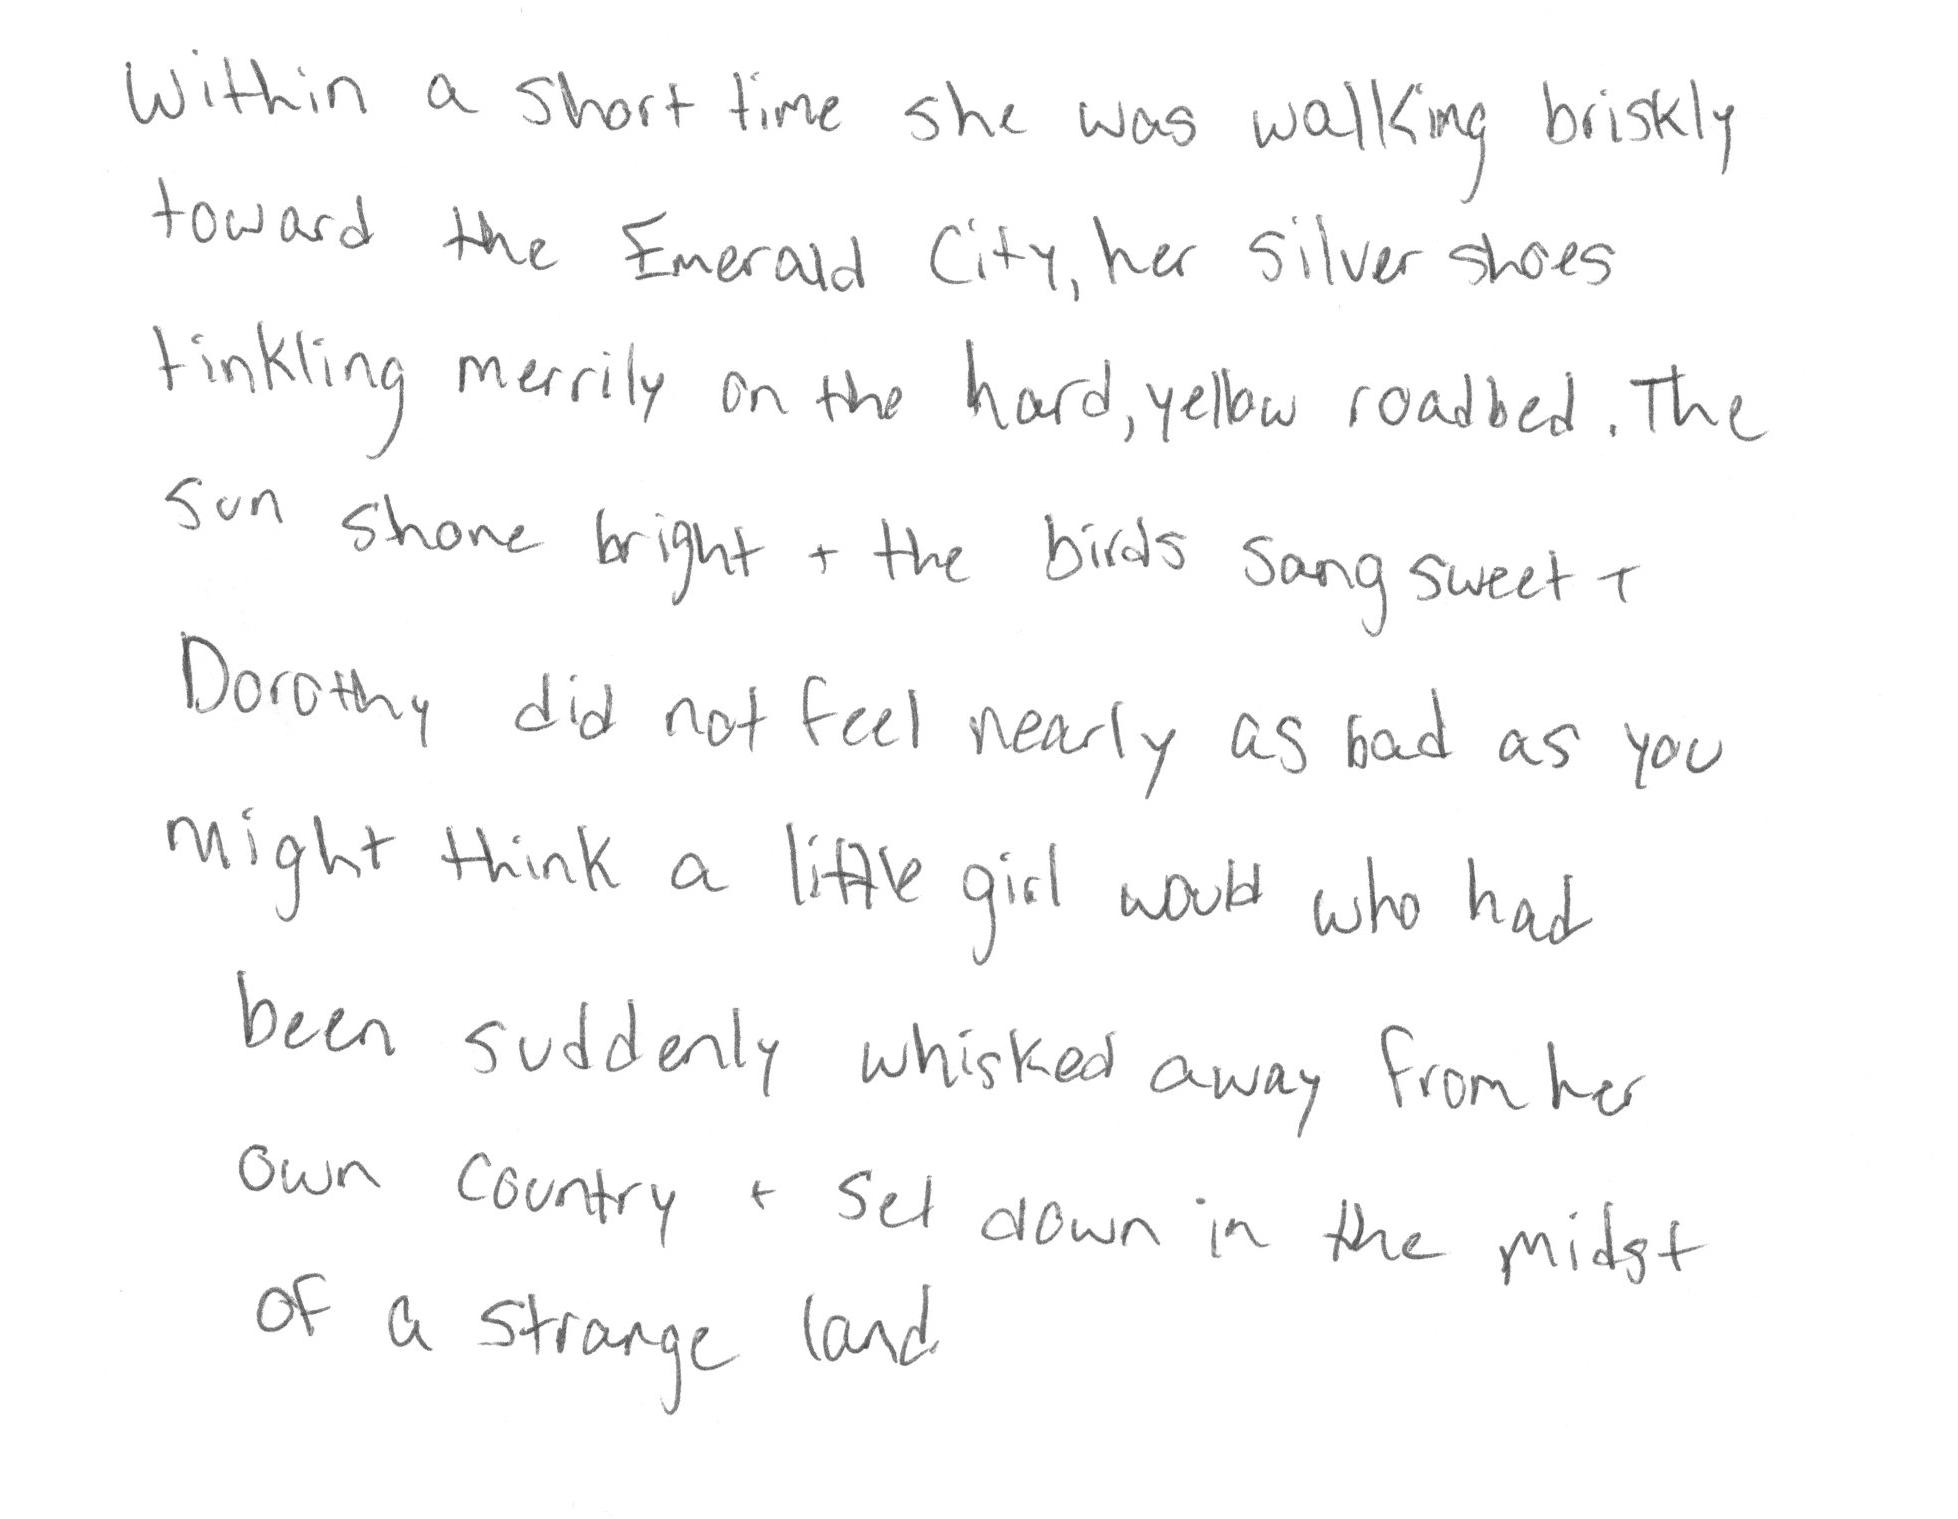 Within a short time she was walking briskly
toward the Emerald City, her silver shoes
tinkling merrily on the hard, yellow roadbed. The
sun shone bright + the birds sang sweet +
Dorothy did not feel nearly as bad as you
might think a little girl would who had
been suddenly whisked away from her
own country + set down in the midst
of a strange land